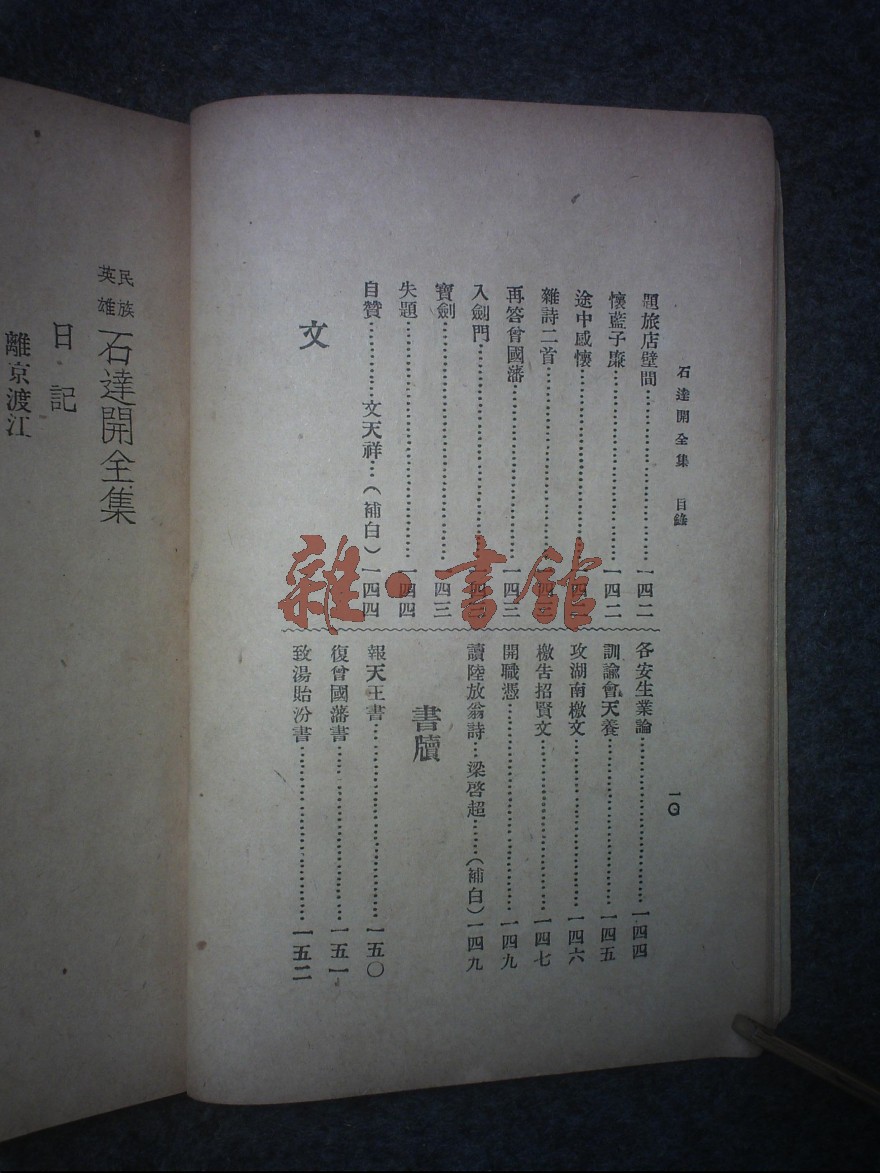 石達開全集　目錄
一〇
題旅店壁間……一四二
懷藍子廉……一四二
途中感懷……一四二
雜詩二首……一四三
再答曾國藩……一四三
入劍門……一四三
寶劍……一四三
失題……一四四
自贊……文天祥…(補白)一四四
文
各安生業諭……一四四
訓諭會天養……一四五
攻湖南檄文……一四六
檄告招賢文……一四七
開職憑……一四九
讀陸放翁詩…梁啓超……(補白)一四九
書牘
報天王書……一五〇
復曾國藩書……一五一
致湯貽汾書……一五二
民族英雄石達開全集
日記
離京渡江
雜·書館